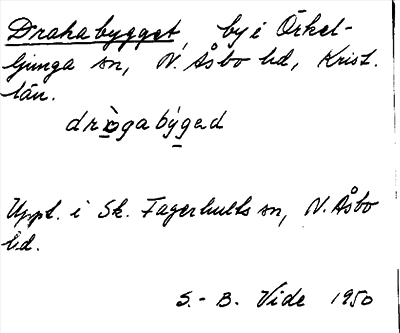 Drakabygget, by i Örkel-
ljunga sn, N. Åsbo hd, Krist.
län.
drɒ̀gabýgəd
Uppt. i Sk. Fagerhults sn, N. Åsbo
hd.
S.-B. Vide 1950